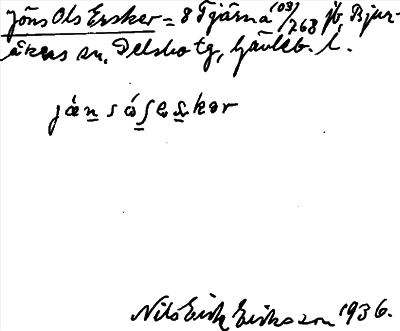 Jöns Ols Ersker = 8 Tjärna (03)/268 jb, Bjur-
åkers sn, Delsbo tg, Gävleb. l.
Nils Erik Eriksson 1936.